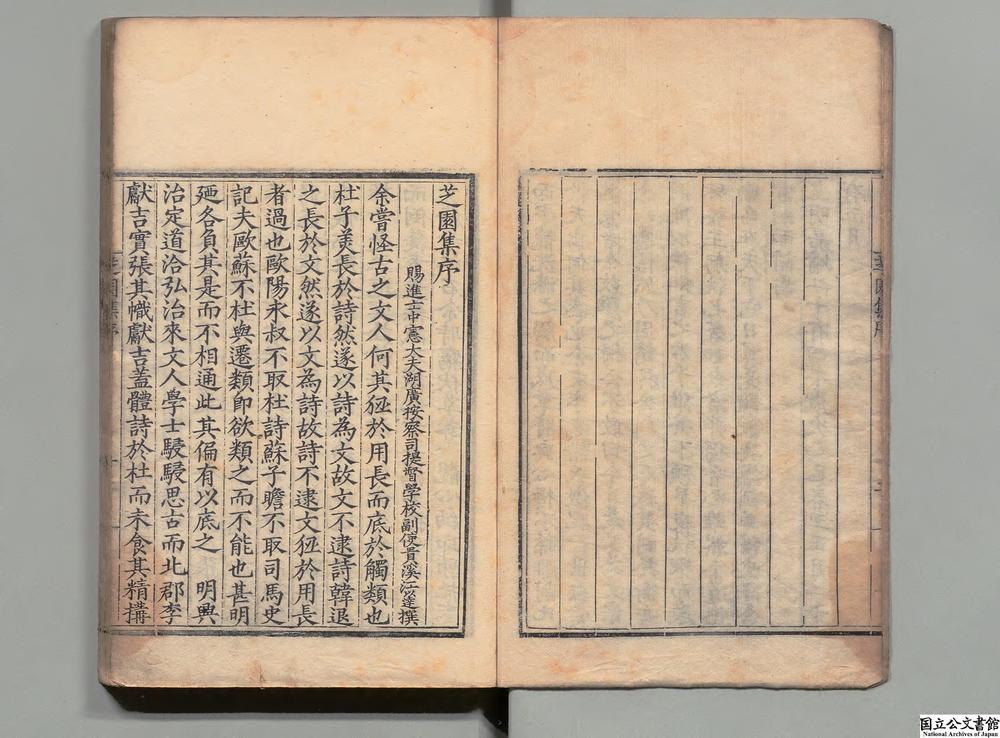 芝園集序
賜進士中憲大夫湖廣按察司提督學校副使貴溪江以達撰
余嘗怪古之文人何其狃於用長而底於觸類也
杜子美長於詩然遂以詩為文故文不逮詩韓退
之長於文然遂以文為詩故詩不逮文狃於用長
者過也歐陽永叔不取杜詩蘇子瞻不取司馬史
記夫歐蘇不杜與遷類卽欲類之而不能也甚明
廼各負其是而不相通此其偏有以底之 明興
治定道洽弘治來文人學士駸駸思古而北郡李
獻吉實張其幟獻吉蓋體詩於杜而未食其精搆
芝園集序
国立公文書館
National Archives of Japan